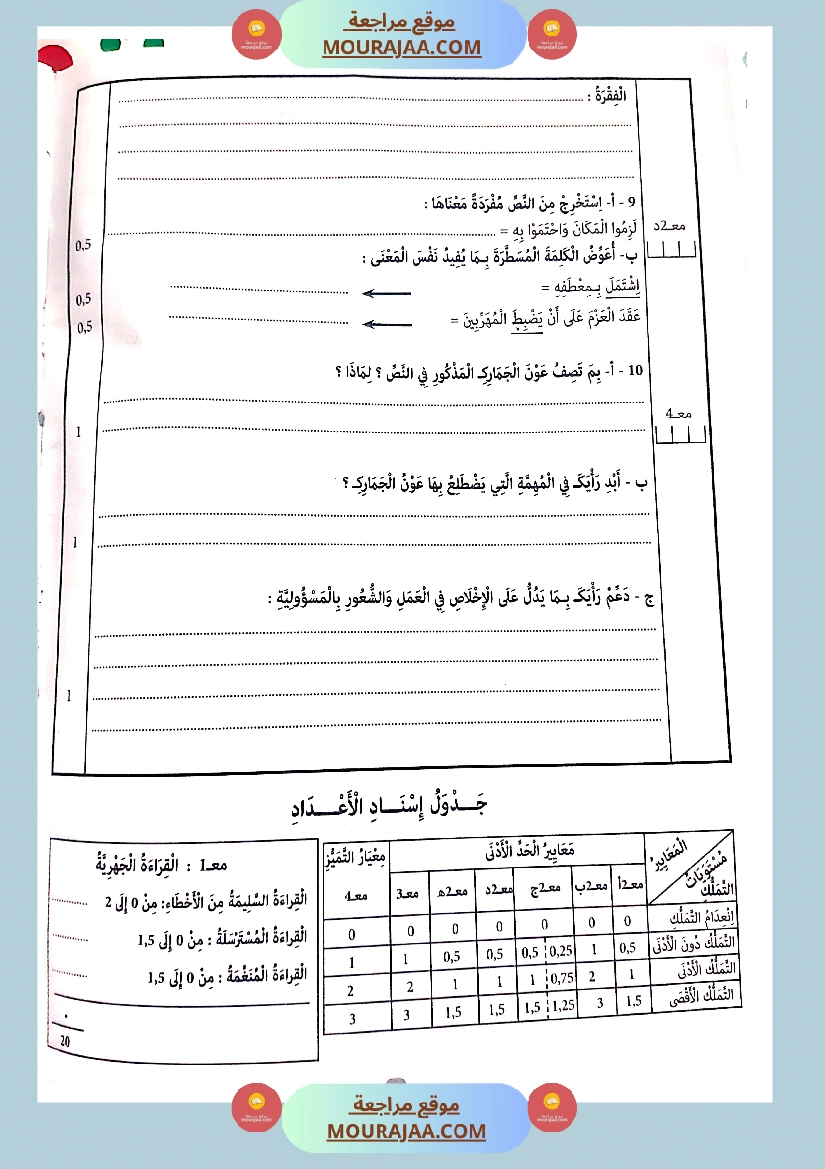 موقع مراجعة
MOURAJAA.COM
الْفِقْرَةُ :
9 - أ- اِسْتَخْرِجْ مِنَ النَّصِّ مُفْرَدَةً مَعْنَاهَا :
معـ2د
لَزِمُوا الْمَكَانَ وَاحْتَمَوْا بِهِ =
0,5
ب- أُعَوِّضُ الْكَلِمَةَ الْمُسَطَّرَةَ بِـمَا يُفِيدُ نَفْسَ الْمَعْنَى :
اِشْتَمَلَ بِـمِعْطَفِهِ =
0,5
عَقَدَ الْعَزْمَ عَلَى أَنْ يَضْبِطَ الْمُهَرِّبِينَ =
0,5
10 - أ- بِمَ تَصِفُ عَوْنَ الْجَمَارِكِ الْمَذْكُورِ فِي النَّصِّ ؟ لِمَاذَا ؟
معـ4
1
ب - أَبْدِ رَأْيَكَ فِي الْمُهِمَّةِ الَّتِي يَضْطَلِعُ بِهَا عَوْنُ الْجَمَارِكِ ؟
1
ج - دَعِّمْ رَأْيَكَ بِـمَا يَدُلُّ عَلَى الْإِخْلَاصِ فِي الْعَمَلِ وَالشُّعُورِ بِالْمَسْؤُولِيَّةِ :
1
جَـــدْوَلُ إِسْنَـــادِ الْأَعْـــدَادِ
الْمَعَايِيرُ
مُسْتَوَيَاتُ التَّمَلُّكِ
مَعَايِيرُ الْحَدِّ الْأَدْنَى
مِعْيَارُ التَّمَيُّزِ
معـ2أ معـ2ب معـ2ج معـ2د معـ2هـ معـ3 معـ4
اِنْعِدَامُ التَّمَلُّكِ 0 0 0 0 0 0 0
التَّمَلُّكُ دُونَ الْأَدْنَى 0,5 1 0,25 0,5 0,5 0,5 1 1
التَّمَلُّكُ الْأَدْنَى 1 2 0,75 1 1 1 2 2
التَّمَلُّكُ الْأَقْصَى 1,5 3 1,25 1,5 1,5 1,5 3 3
معـ1 : الْقِرَاءَةُ الْجَهْرِيَّةُ
الْقِرَاءَةُ السَّلِيمَةُ مِنَ الْأَخْطَاءِ: مِنْ 0 إِلَى 2
الْقِرَاءَةُ الْمُسْتَرْسَلَةُ : مِنْ 0 إِلَى 1,5
الْقِرَاءَةُ الْمُنَغَّمَةُ : مِنْ 0 إِلَى 1,5
20
موقع مراجعة
MOURAJAA.COM